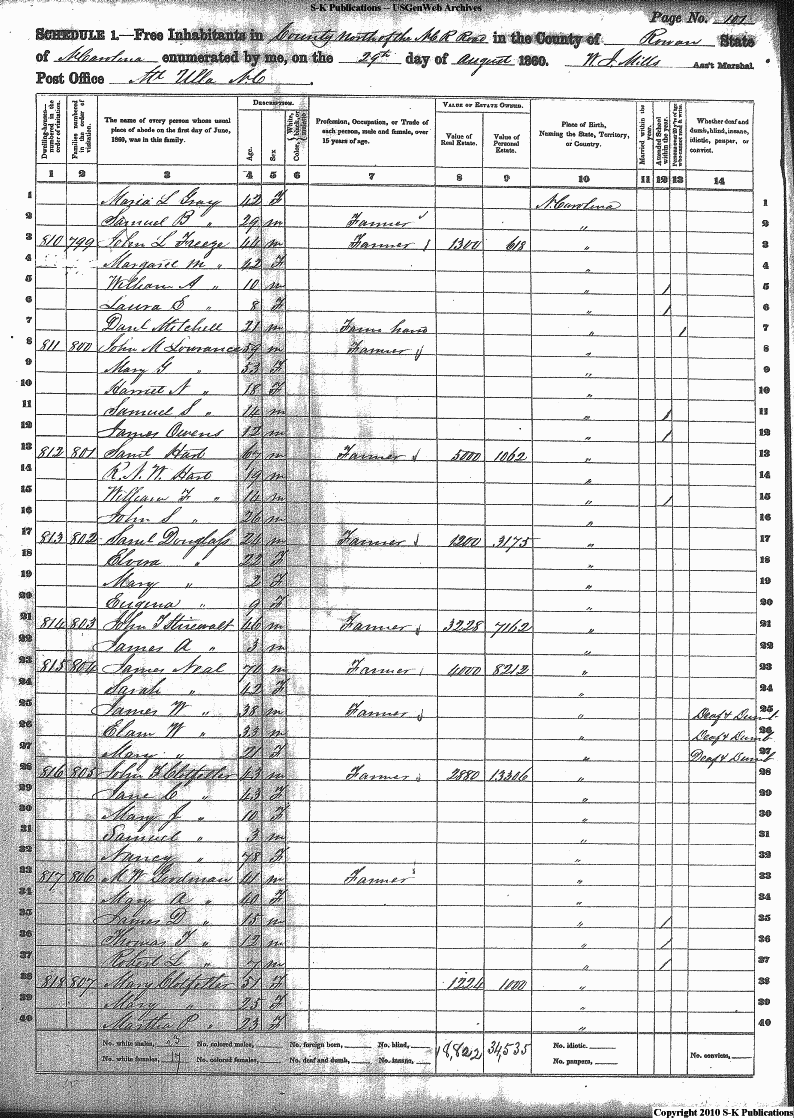 S-K Publications -- USGenWeb Archives
Page No. 101
SCHEDULE 1.—Free Inhabitants in County North of the N C R Road in the County of Rowan State
of N Carolina enumerated by me, on the 29th day of August 1860. W. J. Mills Ass't Marshal.
Post Office Mt Ulla N.C.
Dwelling-houses numbered in the order of visitation.
Families numbered in the order of visitation.
The name of every person whose usual place of abode on the first day of June, 1860, was in this family.
DESCRIPTION.
Age.
Sex
Color, White, black, or mulatto
Profession, Occupation, or Trade of each person, male and female, over 15 years of age.
VALUE OF ESTATE OWNED.
Value of Real Estate.
Value of Personal Estate.
Place of Birth, Naming the State, Territory, or Country.
Married within the year.
Attended School within the year.
Persons over 20 y'rs of age who cannot read & write.
Whether deaf and dumb, blind, insane, idiotic, pauper, or convict.
1 2 3 4 5 6 7 8 9 10 11 12 13 14
1 Maria L Gray 42 F N Carolina 1
2 Samuel B " 29 m Farmer " 2
3 810 799 John L Freeze 44 m Farmer 1300 618 " 3
4 Margaret M " 42 F " 4
5 William A " 10 m " / 5
6 Laura E " 8 F " / 6
7 Danl Mitchell 21 m Farm hand " / 7
8 811 800 John M Lowrance 59 m Farmer " 8
9 Mary G " 53 F " 9
10 Harriet N " 18 F " 10
11 Samuel S " 14 m " / 11
12 James Owens 12 m " / 12
13 812 801 Saml Hart 67 m Farmer 5000 1062 " 13
14 R. N. W. Hart 19 m " 14
15 William F " 14 m " / 15
16 John S " 26 m " 16
17 813 802 Saml Douglass 24 m Farmer 1200 3175 " 17
18 Elvira " 22 F " 18
19 Mary " 2 F " 19
20 Eugenia " 9 F " 20
21 814 803 John J Stirewalt 46 m Farmer 3228 7162 " 21
22 James A " 3 m " 22
23 815 804 James Neal 70 m Farmer 4000 8212 " 23
24 Sarah " 42 F " 24
25 James W " 38 m Farmer " Deaf & Dumb 25
26 Elam W " 33 m " Deaf & Dumb 26
27 Mary " 21 F " Deaf & Dumb 27
28 816 805 John F Clotfelter 43 m Farmer 2880 13306 " 28
29 Jane C " 43 F " 29
30 Mary J " 10 F " 30
31 Samuel " 3 m " 31
32 Nancy " 78 F " 32
33 817 806 M W Goodman 41 m Farmer " 33
34 Mary A " 40 F " 34
35 James D " 15 m " / 35
36 Thomas T " 12 m " / 36
37 Robert L " 7 m " / 37
38 818 807 Mary Clotfelter 51 F 1224 1000 " 38
39 Mary " 25 F " 39
40 Martha P " 23 F " 40
No. white males, 23 No. colored males, No. foreign born, No. blind, 18,822 34,535 No. idiotic.
No. white females, 17 No. colored females, No. deaf and dumb, No. insane, No. paupers, No. convicts,
Copyright 2010 S-K Publications